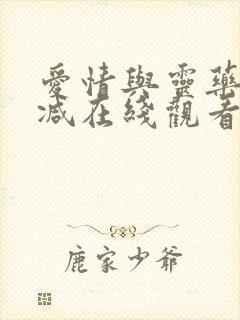 愛情與靈藥
減在綫觀看
鹿家少爺